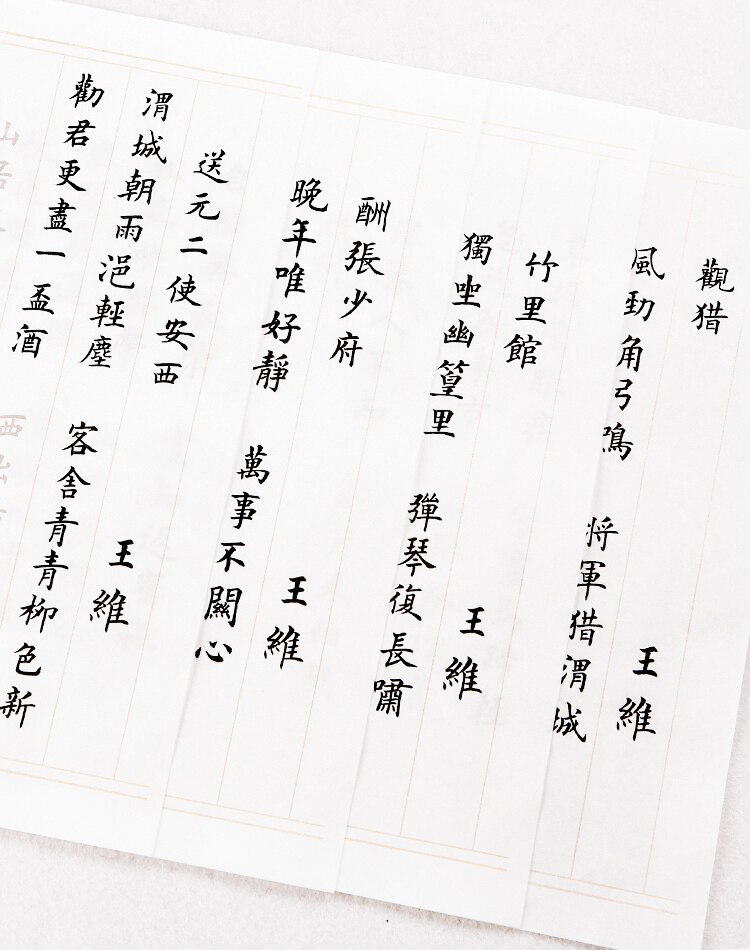 觀猎
王維
風勁角弓鳴 将軍猎渭城
竹里館
王維
獨坐幽篁里 彈琴復長嘯
酬張少府
王維
晚年唯好靜 萬事不關心
送元二使安西
王維
渭城朝雨浥輕塵 客舍青青柳色新
勸君更盡一盃酒